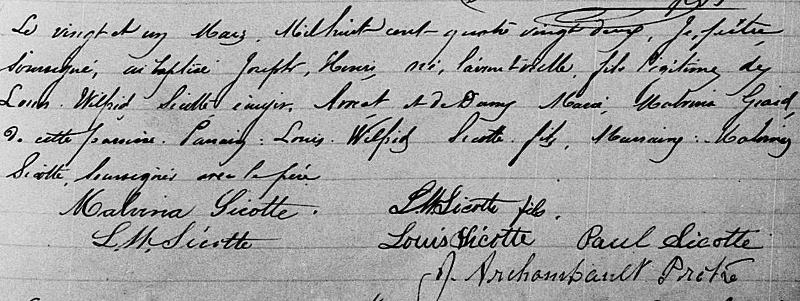 Le vingt et un Mars, Mil huit cent quatre vingt deux, Je, prêtre
Soussigné, ai baptisé Joseph, Henri, né, l'avant veille, fils légitime de
Louis Wilfrid Sicotte écuyer, Avocat et de Damy Marie, Malvina Girard,
de cette paroisse. Parrain: Louis Wilfrid Sicotte fils, Marraine: Malvina
Sicotte, Soussignés avec le père
Malvina Sicotte. L.W. Sicotte fils.
L.W. Sicotte Louis Sicotte Paul Sicotte
J. Archambault Prêtre